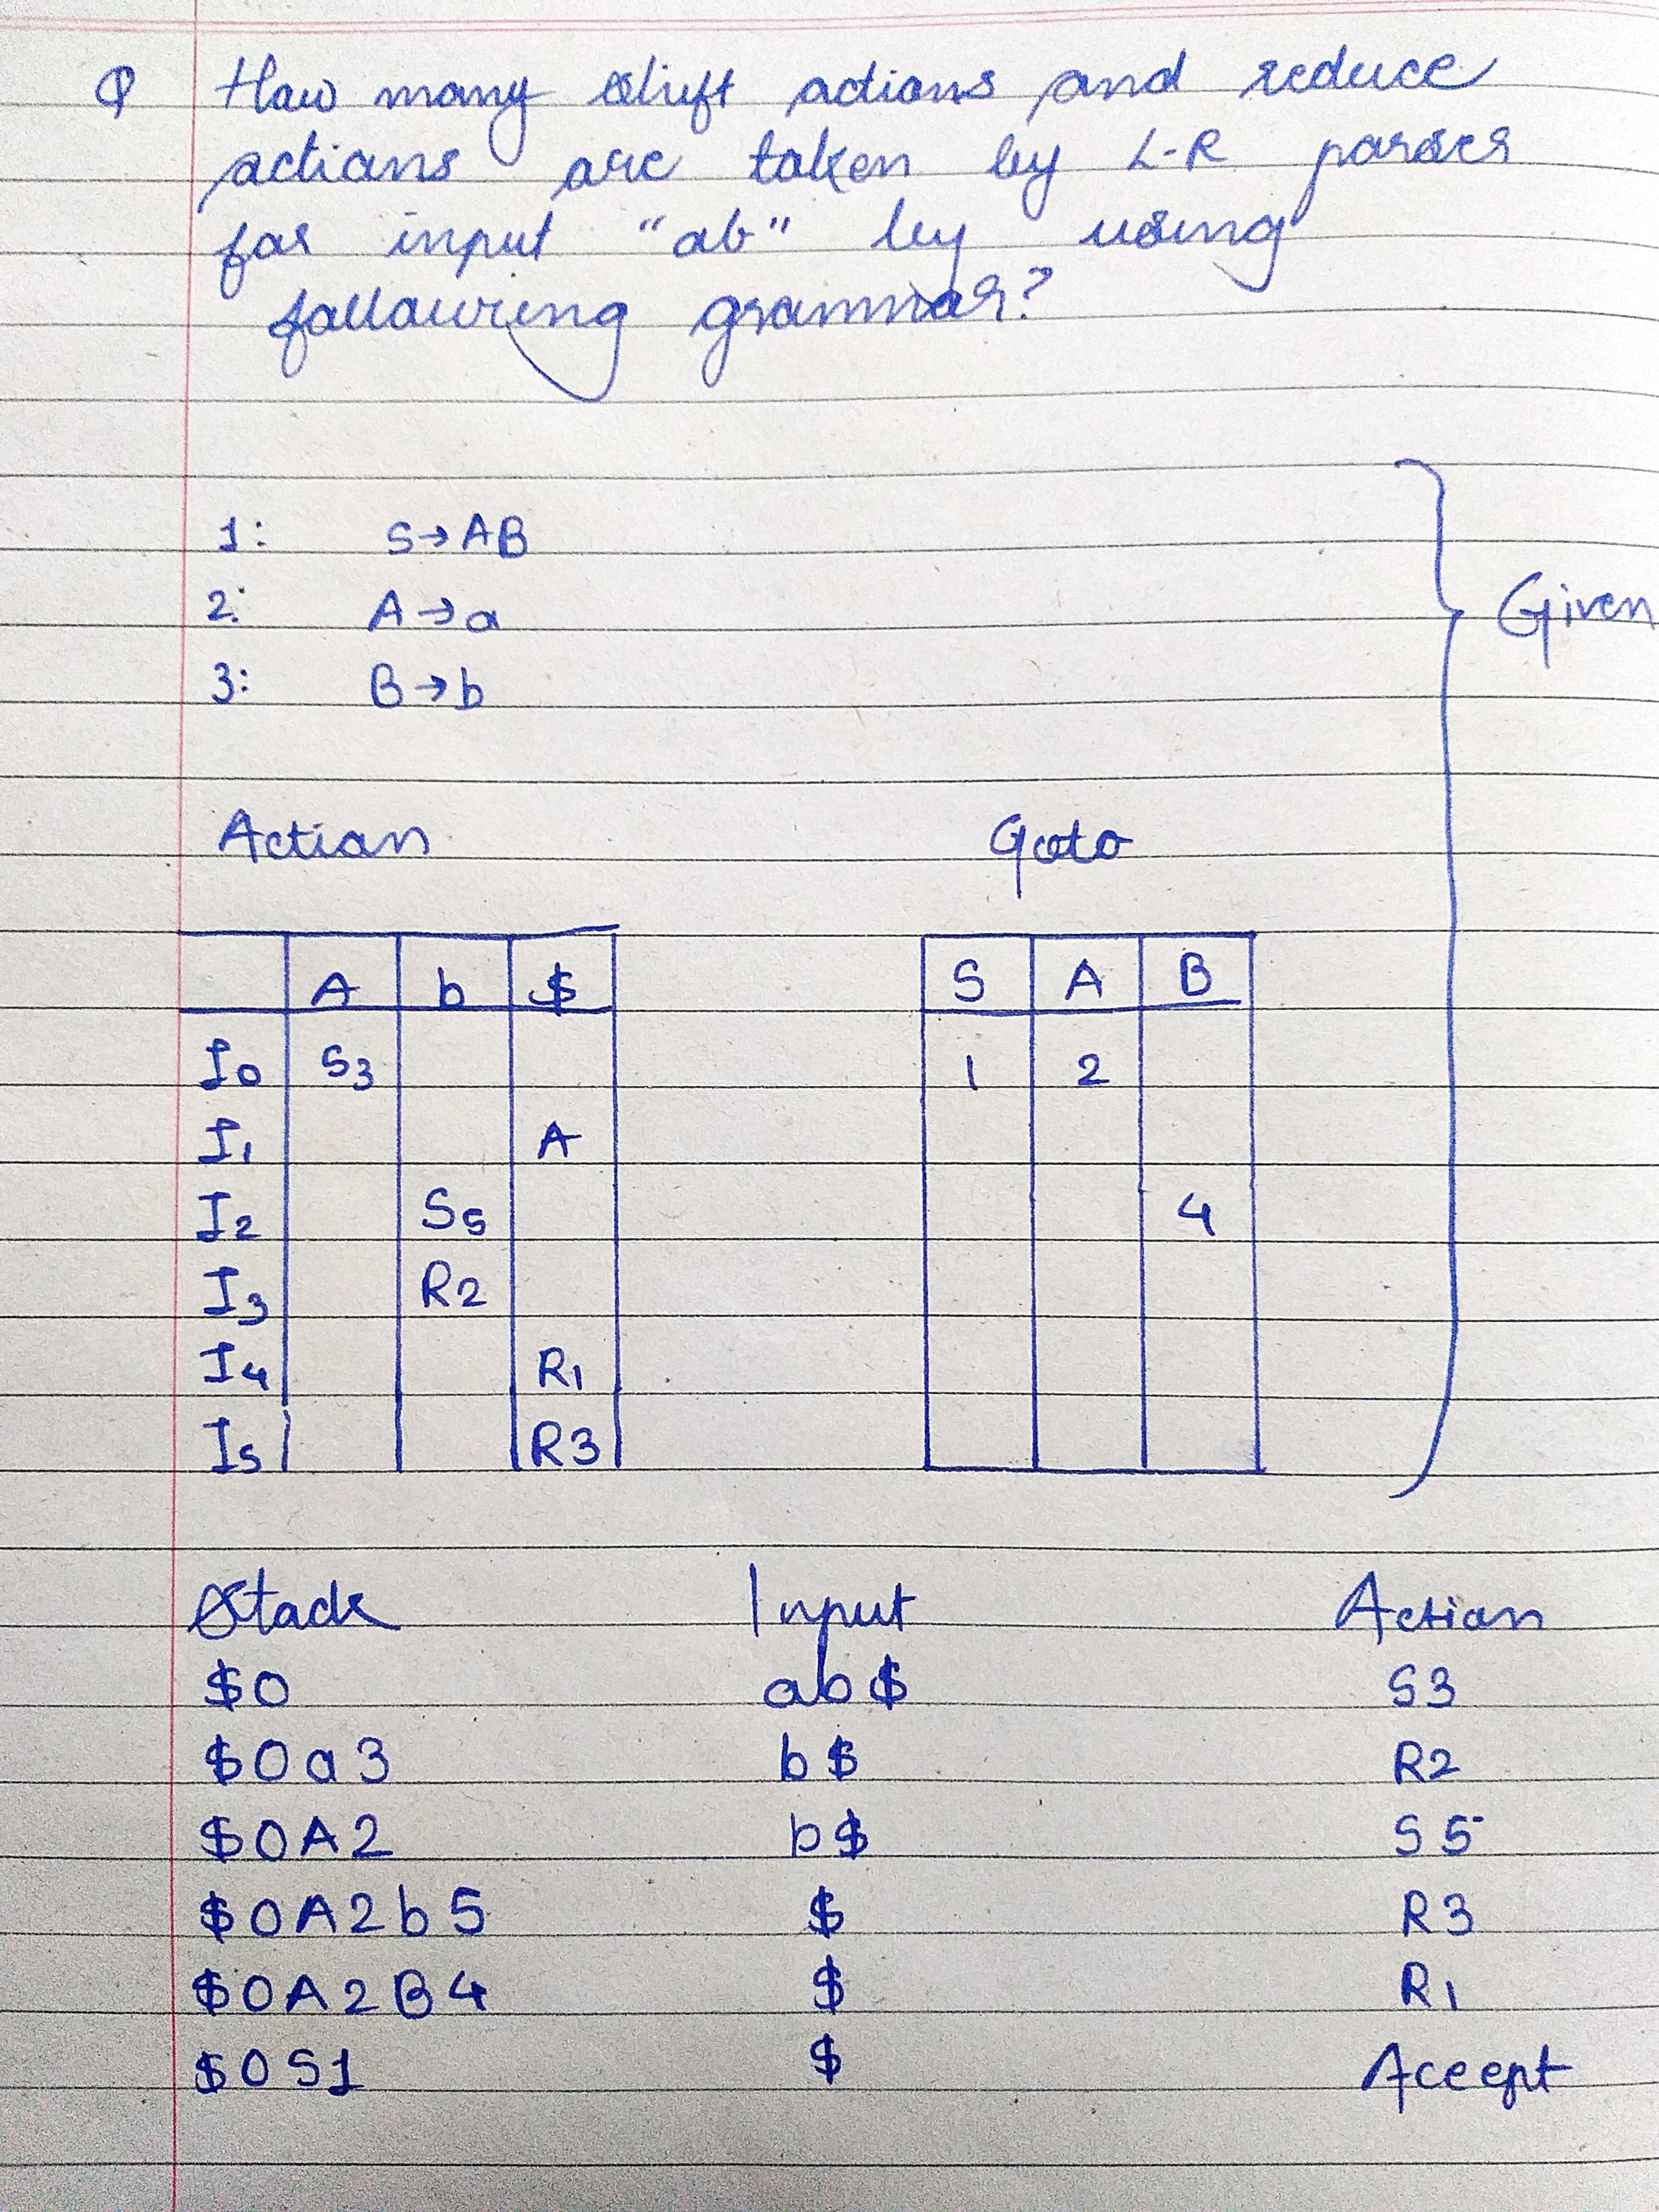 Q How many shift actions and reduce
actions are taken by L-R parser
for input "ab" by using
following grammar?
1: S→AB
2: A→a
3: B→b
Given
Action Goto
A b $ S A B
I0 S3 1 2
I1 A
I2 S5 4
I3 R2
I4 R1
I5 R3
Stack Input Action
$0 ab$ S3
$0a3 b$ R2
$0A2 b$ S5
$0A2b5 $ R3
$0A2B4 $ R1
$0S1 $ Accept